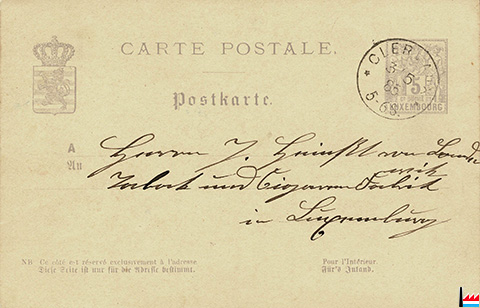 CARTE POSTALE.
Postkarte.
* CLERF
5
5
86
5-6S
5
LUXEMBOURG
A
An
Herrn J.
Taback und Cigarren Fabrik
in Luxemburg
NB Ce côté est réservé exclusivement à l'adresse
Diese Seite ist nur für die Adresse bestimmt.
Pour l'Intérieur.
Für's Inland.